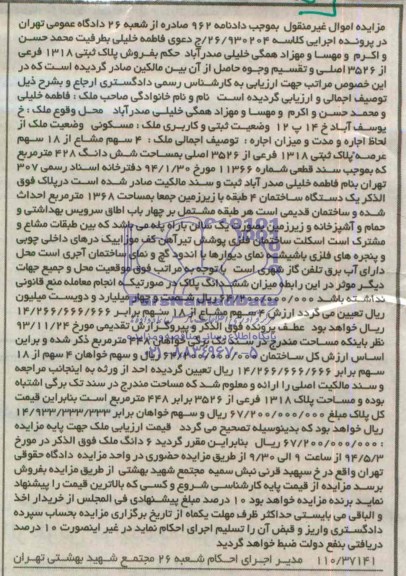 مزایده اموال غیرمنقول بموجب دادنامه ۹۶۲ صادره از شعبه ۲۶ دادگاه عمومی تهران
در پرونده اجرایی کلاسه ۲۶/۹۳۰۲۰۴/ج دعوی فاطمه خلیلی بطرفیت محمد حسن
و اکرم و مهسا و مهزاد همگی خلیلی صدرآباد حکم بفروش پلاک ثبتی ۱۳۱۸ فرعی
از ۳۵۲۶ اصلی و تقسیم وجوه حاصل از آن بین مالکین صادر گردیده است که در
این خصوص مراتب جهت ارزیابی به کارشناس رسمی دادگستری ارجاع و بشرح ذیل
توصیف اجمالی و ارزیابی گردیده است نام و نام خانوادگی صاحب ملک : فاطمه خلیلی
و محمد حسن و اکرم و مهسا و مهزاد همگی خلیلی صدرآباد محل وقوع ملک : خ
یوسف آباد خ ۱۴ پ ۱۲ وضعیت ثبتی و کاربری ملک : مسکونی وضعیت ملک از
لحاظ اجاره و مدت و میزان اجاره : توصیف اجمالی ملک : ۴ سهم مشاع از ۱۸ سهم
عرصه پلاک ثبتی ۱۳۱۸ فرعی از ۳۵۲۶ اصلی بمساحت شش دانگ ۴۲۸ مترمربع
که بموجب سند قطعی شماره ۱۱۳۶۶ مورخ ۹۴/۱/۳۰ دفترخانه اسناد رسمی ۳۰۷
تهران بنام فاطمه خلیلی صدر آباد ثبت و سند مالکیت صادر شده است درپلاک فوق
الذکر یک دستگاه ساختمان ۴ طبقه با زیرزمین جمعا بمساحت ۱۳۶۸ مترمربع احداث
شده و ساختمان قدیمی است هر طبقه مشتمل بر چهار باب اطاق سرویس بهداشتی و
حمام و آشپزخانه و زیرزمین بصورت پارکینگ انبار راه پله می باشد که بین طبقات مشاع و
مشترک است اسکلت ساختمان فلزی پوشش تیرآهن کف موزاییک درهای داخلی چوبی
و پنجره های فلزی باشیشه نمای دیوارها با اندود گچ و نمای ساختمان آجری است محل
دارای آب برق تلفن گاز شهری است با توجه به مراتب فوق موقعیت محل و جمیع جهات
دیگر موثر در این رابطه میزان ششدانگ پلاک در صورتیکه انجام معامله منع قانونی
نداشته باشد میلیارد و دویست میلیون
ریال تعیین می گردد ارزش ۴ سهم مشاع از ۱۸ سهم برابر ۱۴/۲۶۶/۶۶۶/۶۶۶
ریال خواهد بود عطف پرونده فوق الذکر و پیرو گزارش تقدیمی مورخ ۹۳/۱۱/۲۴
نظر باینکه مساحت مندرج در سند تک برگی خواهان ۴۲۸ مترمربع ذکر شده و براین
اساس ارزش کل ساختمان ریال و سهم خواهان ۴ سهم از ۱۸
سهم برابر ۱۴/۲۶۶/۶۶۶/۶۶۶ ریال تعیین گردیده احد از ورثه به اینجانب مراجعه
و سند مالکیت اصلی را ارائه و معلوم شد که مساحت مندرج در سند تک برگی اشتباه
بوده و مساحت پلاک ۱۳۱۸ فرعی از ۳۵۲۶ برابر ۴۴۸ مترمربع است بنابراین قیمت
کل پلاک مبلغ ۶۷/۲۰۰/۰۰۰/۰۰۰ ریال و سهم خواهان برابر ۱۴/۹۳۳/۳۳۳/۳۳۳
ریال خواهد بود که بدینوسیله تصحیح می گردد قیمت ارزیابی ملک جهت پایه مزایده
: ۶۷/۲۰۰/۰۰۰/۰۰۰ ریال بنابراین مقرر گردید ۶ دانگ ملک فوق الذکر در مورخ
۹۴/۵/۳ از ساعت ۹ الی ۹/۳۰ از طریق مزایده حضوری در واحد مزایده دادگاه حقوقی
تهران واقع در خ سپهبد قرنی نبش سمیه مجتمع شهید بهشتی از طریق مزایده بفروش
برسد مزایده از قیمت پایه کارشناسی شروع و کسی که بالاترین قیمت را پیشنهاد
نماید برنده مزایده خواهد بود ۱۰ درصد مبلغ پیشنهادی فی المجلس از خریدار اخذ
و الباقی می بایستی حداکثر ظرف مهلت یکماه از تاریخ برگزاری مزایده بحساب سپرده
دادگستری واریز و قبض آن را تسلیم اجرای احکام نماید در غیر اینصورت ۱۰ درصد
دریافتی بنفع دولت ضبط خواهد گردید
۱۱۰/۳۷۱۴۱ مدیر اجرای احکام شعبه ۲۶ مجتمع شهید بهشتی تهران